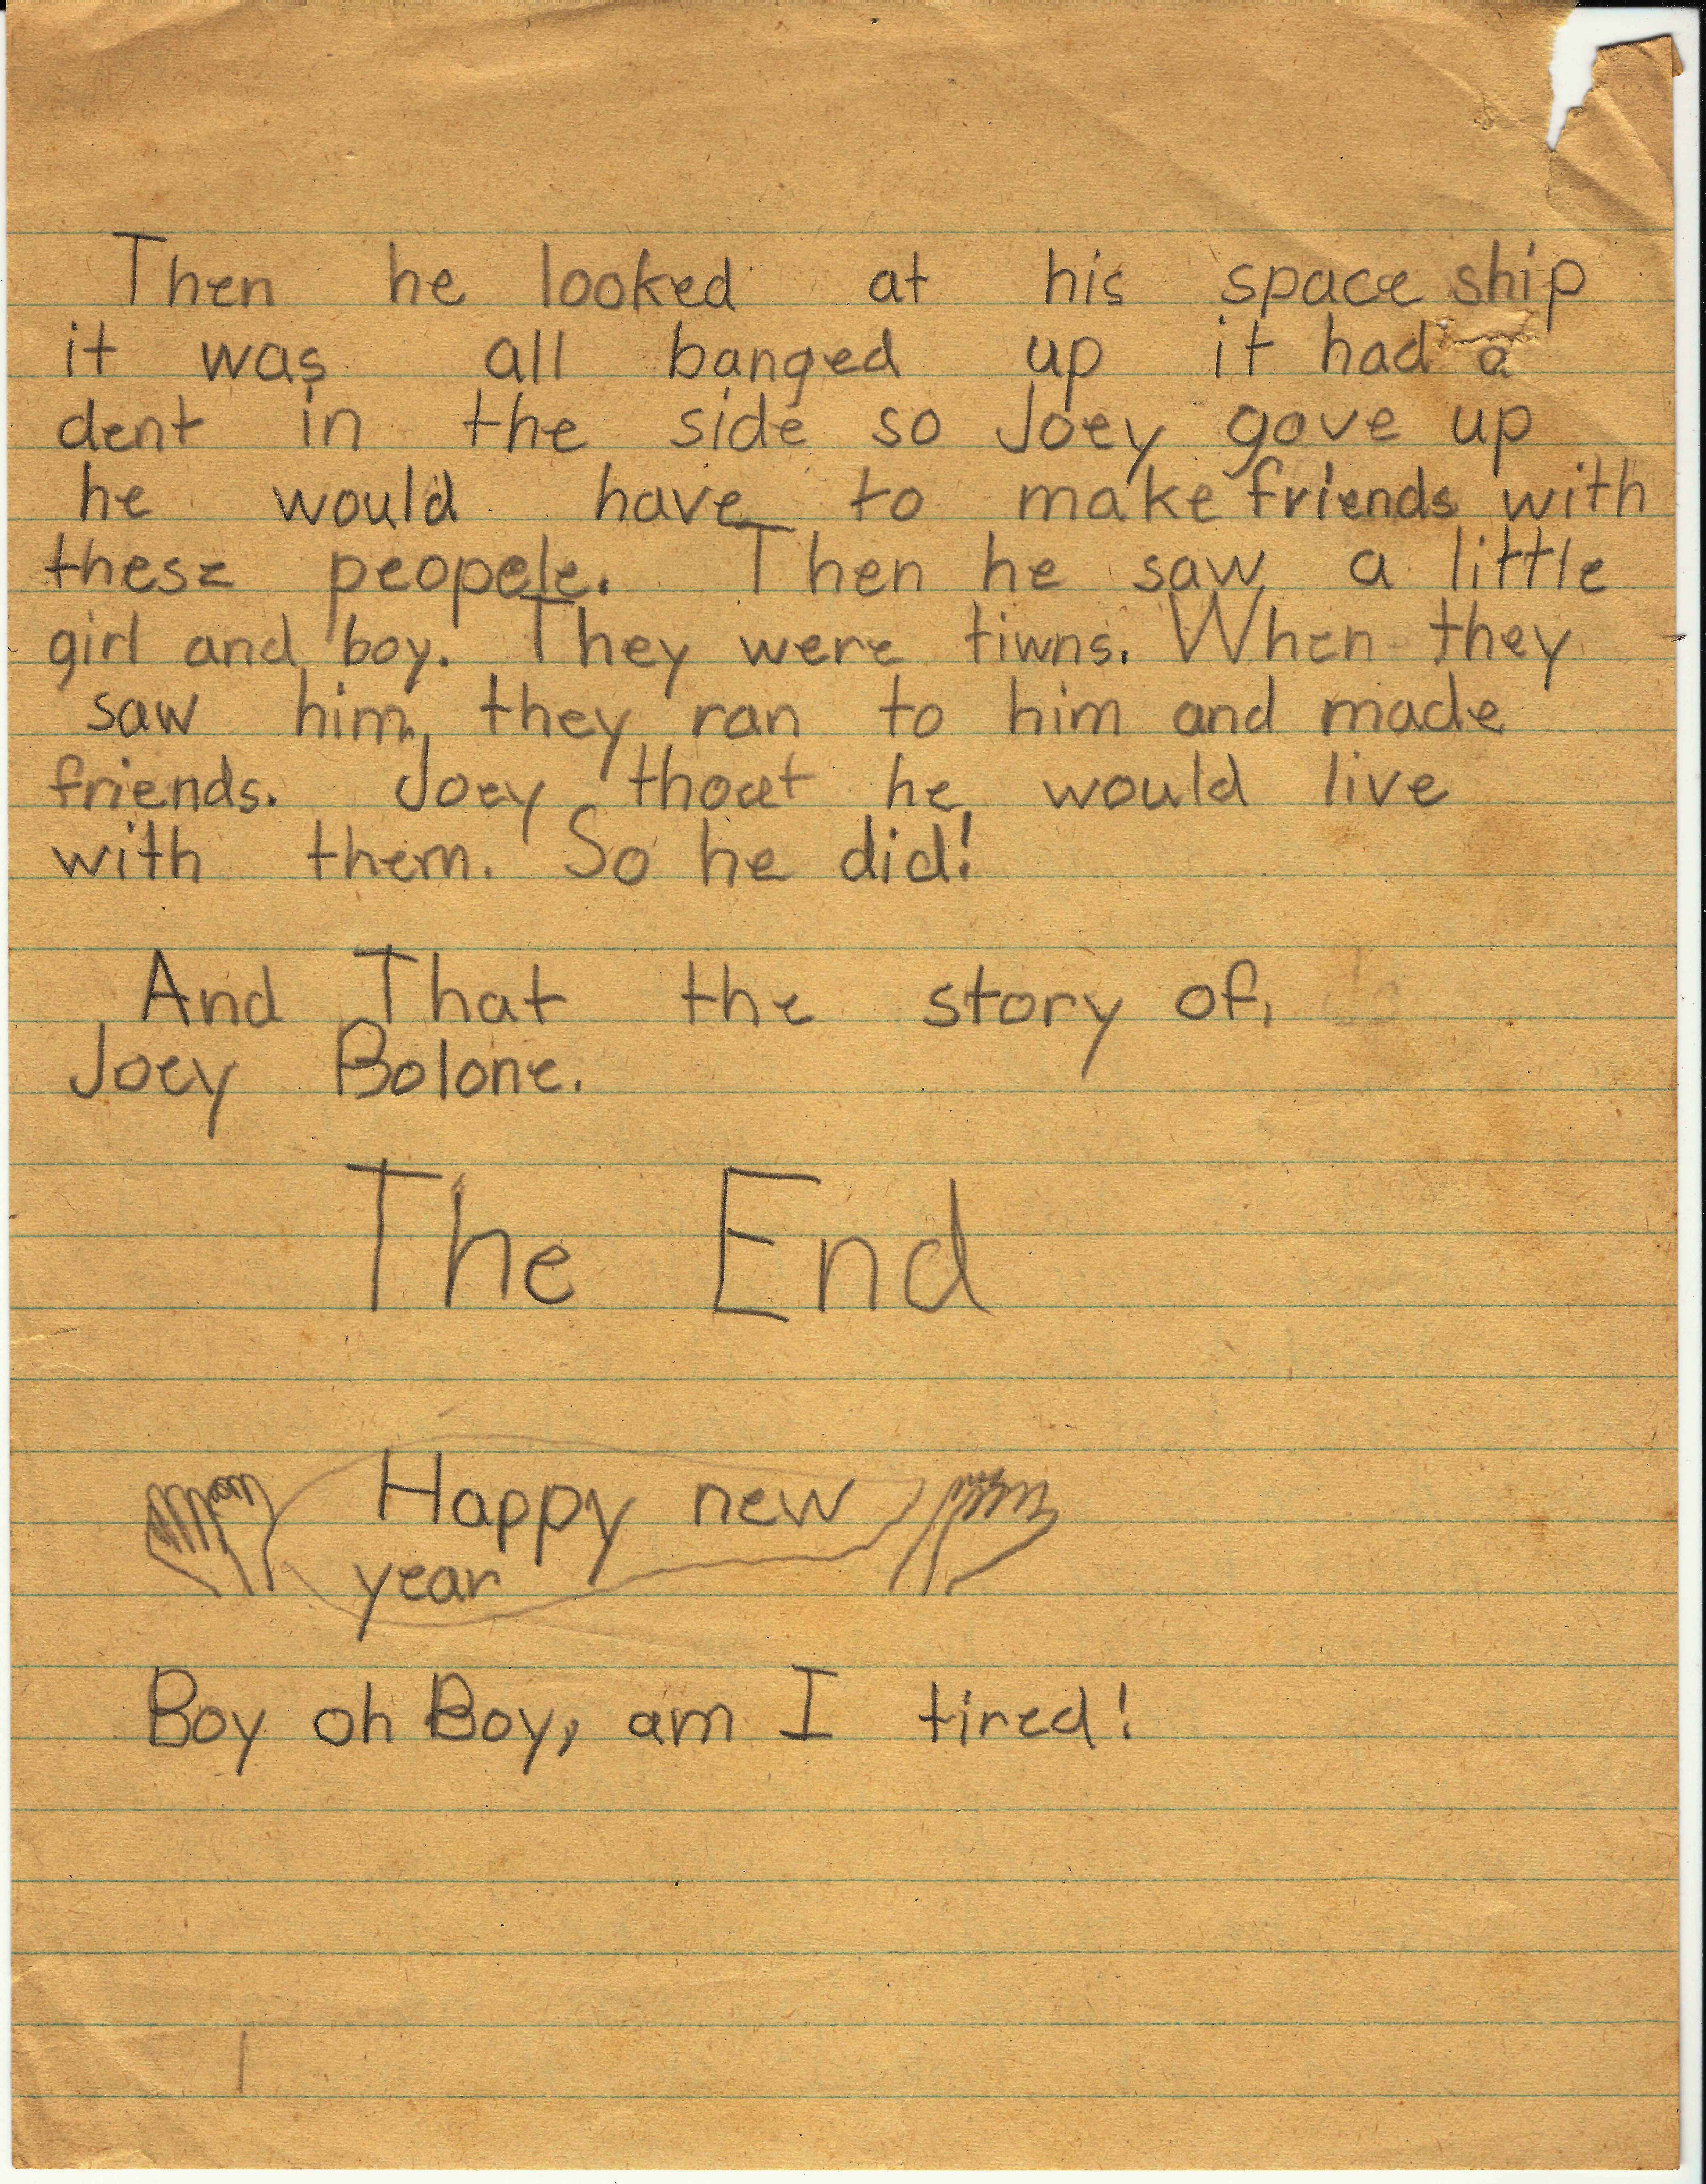 Then he looked at his space ship
it was all banged up it had a
dent in the side so Joey gave up
he would have to make friends with
these peopele. Then he saw a little
girl and boy. They were tiwns. When they
saw him they ran to him and made
friends. Joey thout he would live
with them. So he did!
And That the story of,
Joey Bolone.
The End
Happy new
year
Boy oh Boy, am I tired!